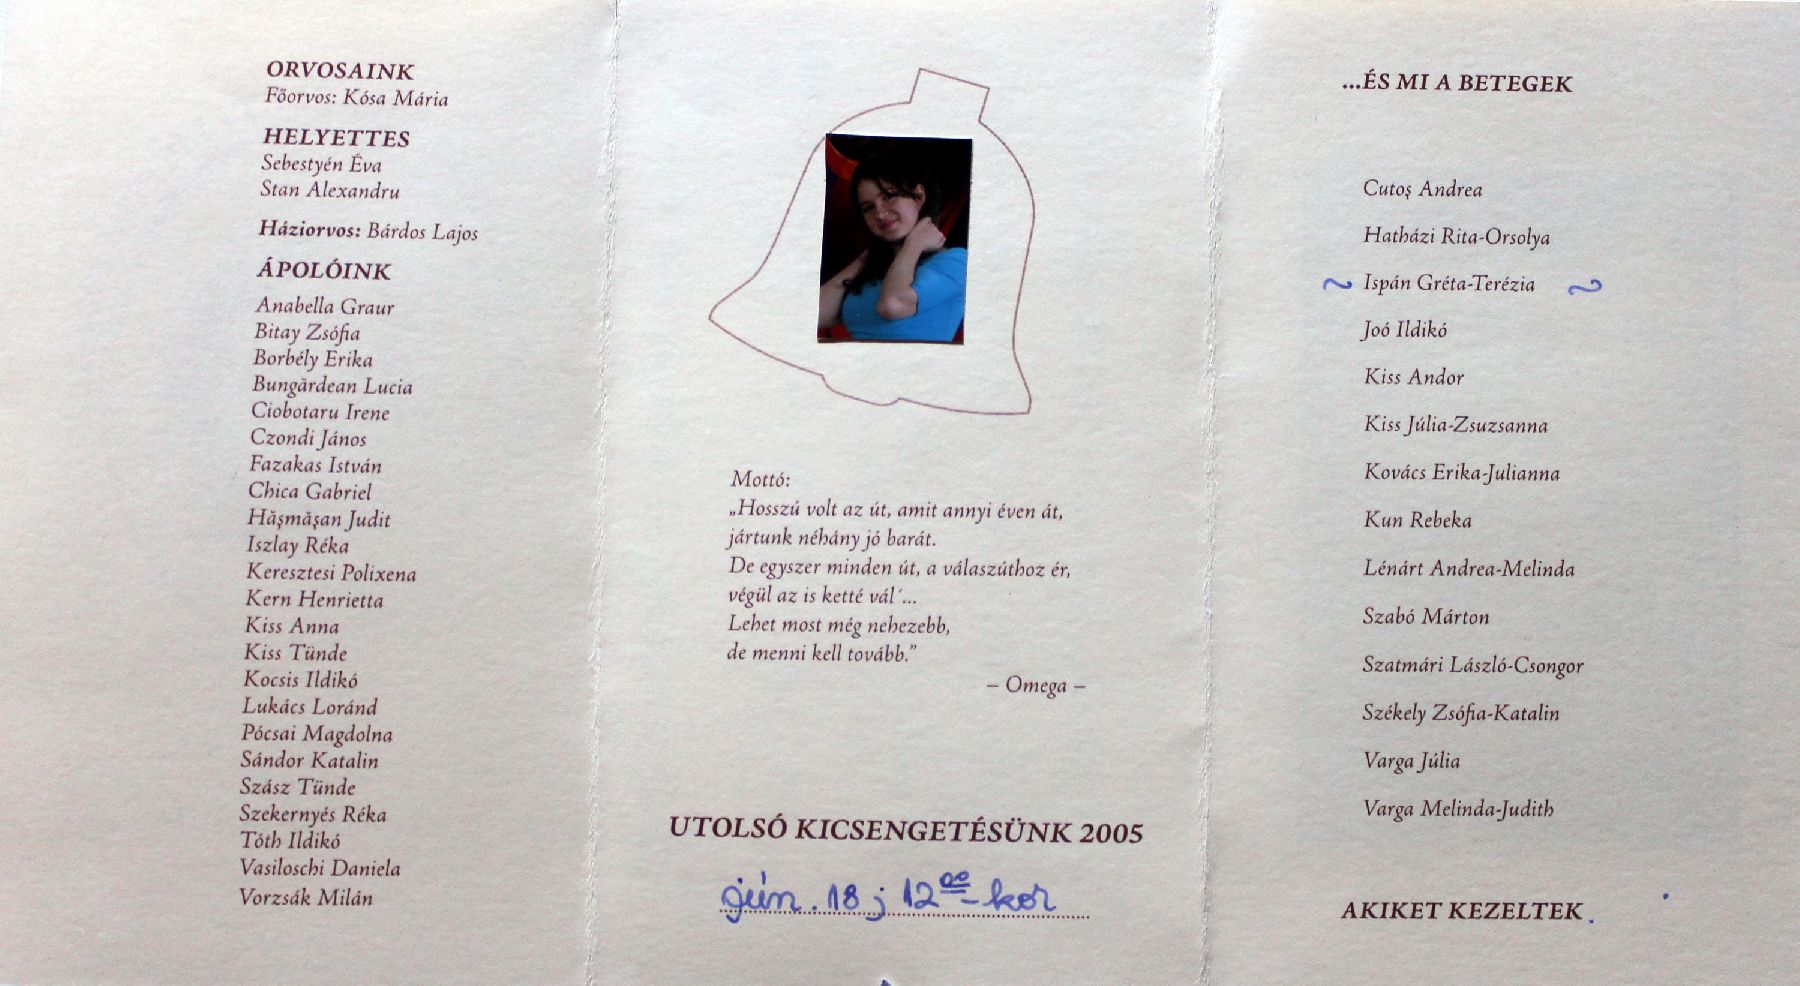 ORVOSAINK
Főorvos: Kósa Mária
HELYETTES
Sebestyén Éva
Stan Alexandru
Háziorvos: Bárdos Lajos
ÁPOLÓINK
Anabella Graur
Bitay Zsófia
Borbély Erika
Bungărdean Lucia
Ciobotaru Irene
Czondi János
Fazakas István
Chica Gabriel
Hăşmăşan Judit
Iszlay Réka
Keresztesi Polixena
Kern Henrietta
Kiss Anna
Kiss Tünde
Kocsis Ildikó
Lukács Loránd
Pócsai Magdolna
Sándor Katalin
Szász Tünde
Szekernyés Réka
Tóth Ildikó
Vasiloschi Daniela
Vorzsák Milán
Mottó:
„Hosszú volt az út, amit annyi éven át,
jártunk néhány jó barát.
De egyszer minden út, a válaszúthoz ér,
végül az is ketté vál´...
Lehet most még nehezebb,
de menni kell tovább.”
– Omega –
UTOLSÓ KICSENGETÉSÜNK 2005
jún. 18 ; 12⁰⁰-kor
...ÉS MI A BETEGEK
Cutoş Andrea
Hatházi Rita-Orsolya
~ Ispán Gréta-Terézia ~
Joó Ildikó
Kiss Andor
Kiss Júlia-Zsuzsanna
Kovács Erika-Julianna
Kun Rebeka
Lénárt Andrea-Melinda
Szabó Márton
Szatmári László-Csongor
Székely Zsófia-Katalin
Varga Júlia
Varga Melinda-Judith
AKIKET KEZELTEK.